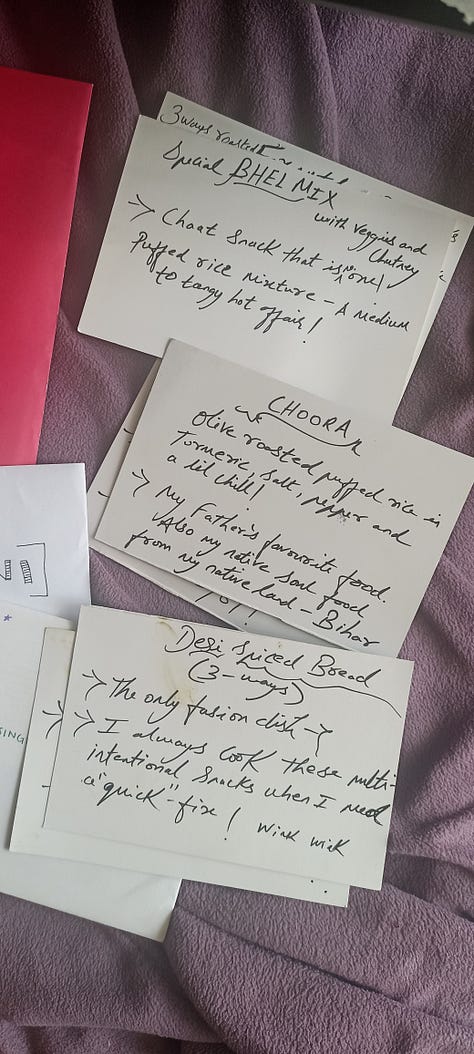 3 ways roasted
Special BHEL MIX
with veggies and
Chutney
→ Chaat Snack that is no one!
Puffed rice mixture - A medium
to tangy hot affair!
CHOORA
Olive roasted puffed rice in
Turmeric, salt, pepper and
a lil chilli!
→ My Father's favourite food.
Also my native soul food
from my native land - Bihar
Desi Spiced Bread
(3-ways)
→ The only fusion dish
→ I always cook these multi-
intentional snacks when I need
a "quick"-fix! wink wink
SING